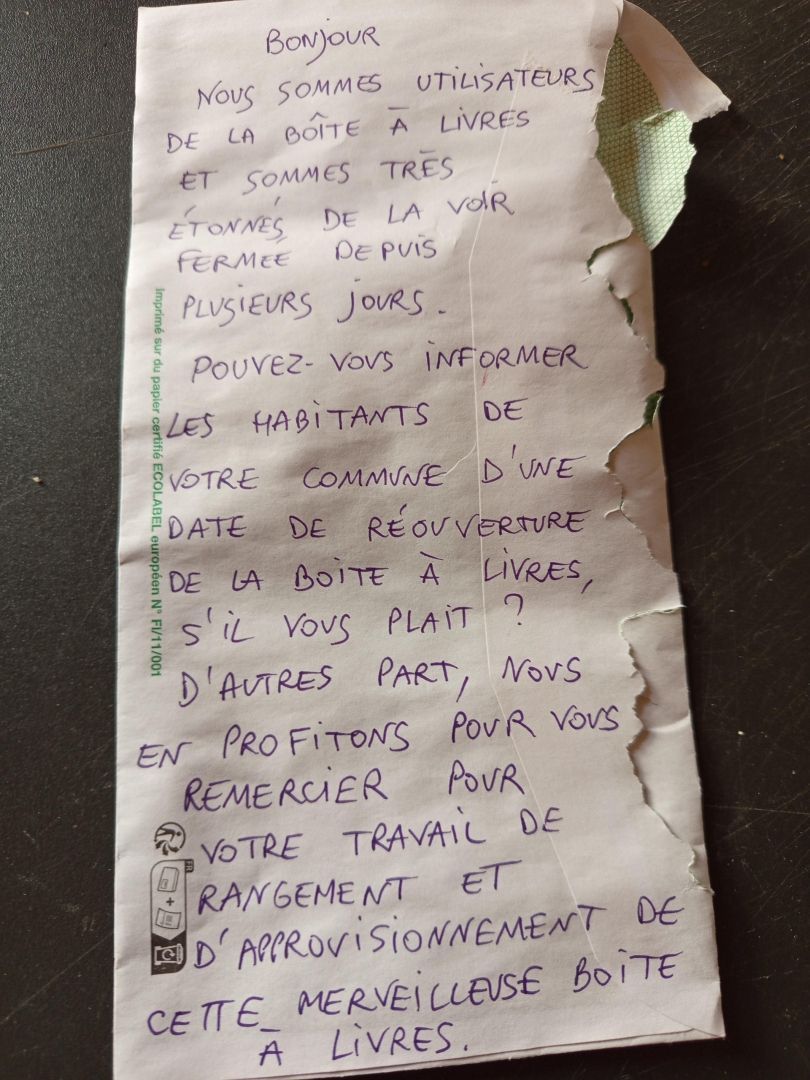 BONJOUR
NOUS SOMMES UTILISATEURS
DE LA BOÎTE À LIVRES
ET SOMMES TRÈS
ÉTONNÉS DE LA VOIR
FERMÉE DEPUIS
PLUSIEURS JOURS.
POUVEZ-VOUS INFORMER
LES HABITANTS DE
VOTRE COMMUNE D'UNE
DATE DE RÉOUVERTURE
DE LA BOITE À LIVRES,
S'IL VOUS PLAIT ?
D'AUTRES PART, NOUS
EN PROFITONS POUR VOUS
REMERCIER POUR
VOTRE TRAVAIL DE
RANGEMENT ET
D'APPROVISIONNEMENT DE
CETTE MERVEILLEUSE BOITE
À LIVRES.
Imprimé sur du papier certifié ECOLABEL européen N° FI/11/001
FR